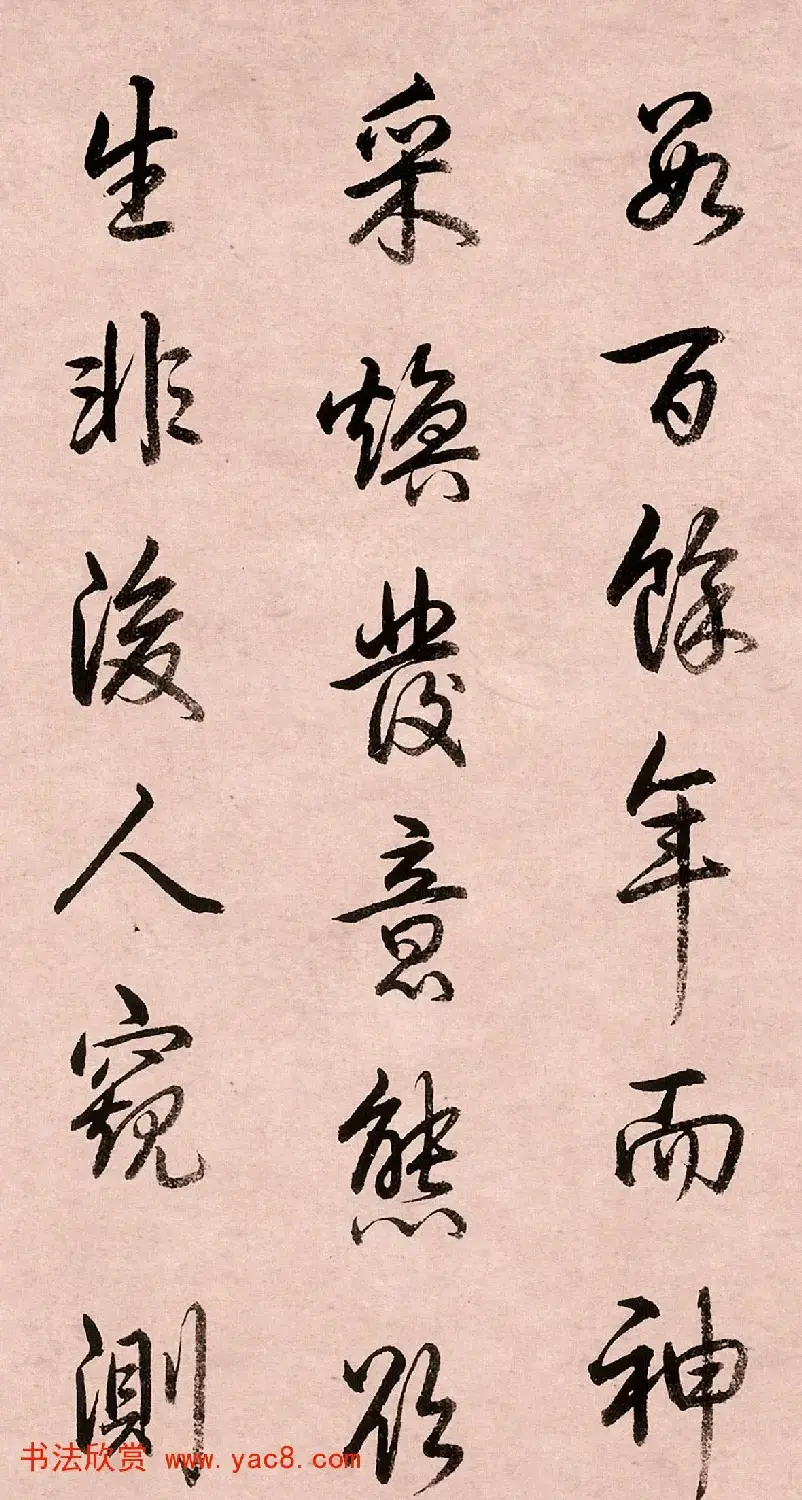 數百餘年而神
采煥發意態欲
生非後人窺測
书法欣赏 www.yac8.com